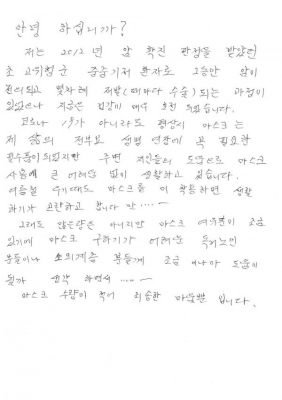 안녕 하십니까?
저는 2012년 암 확진 판정을 받았던
초 고위험군 중증기저 환자로 그동안 암이
전이되고 몇차례 재발(때마다 수술)되는 과정이
있었으나 지금은 건강이 매우 호전 되었습니다.
코로나 19가 아니라도 평상시 마스크는
제 삶의 전부요 생명 연장에 꼭 필요한
필수품이 되었지만 주변 지인들의 도움으로 마스크
사용에 큰 어려움 없이 생활하고 있습니다.
여름철 무더위에도 마스크를 미 착용하면 생활
하기가 곤란하고 합니다 만 ----
그래도 많은양은 아니지만 마스크 여유분이 조금
있기에 마스크 구하기가 어려운 독거노인
분들이나 소외계층 분들께 조금 이나마 도움이
될까 생각 하면서 ----
마스크 수량이 적어 죄송한 마음뿐 입니다.